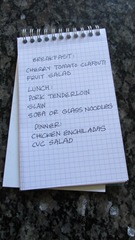 BREAKFAST:
CHERRY TOMATO CLAFOUTI
FRUIT SALAD
LUNCH:
PORK TENDERLOIN
SLAW
SOBA OR GLASS NOODLES
DINNER:
CHICKEN ENCHILADAS
CVC SALAD